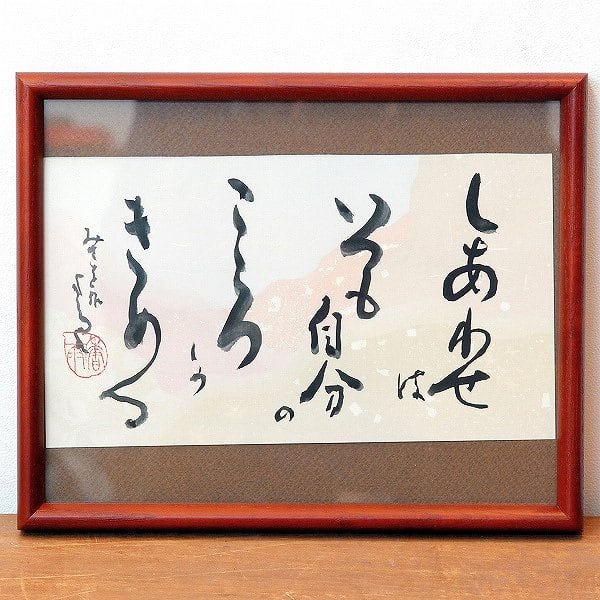 しあわせは
いつも自分の
こころが
きめる
みつを作